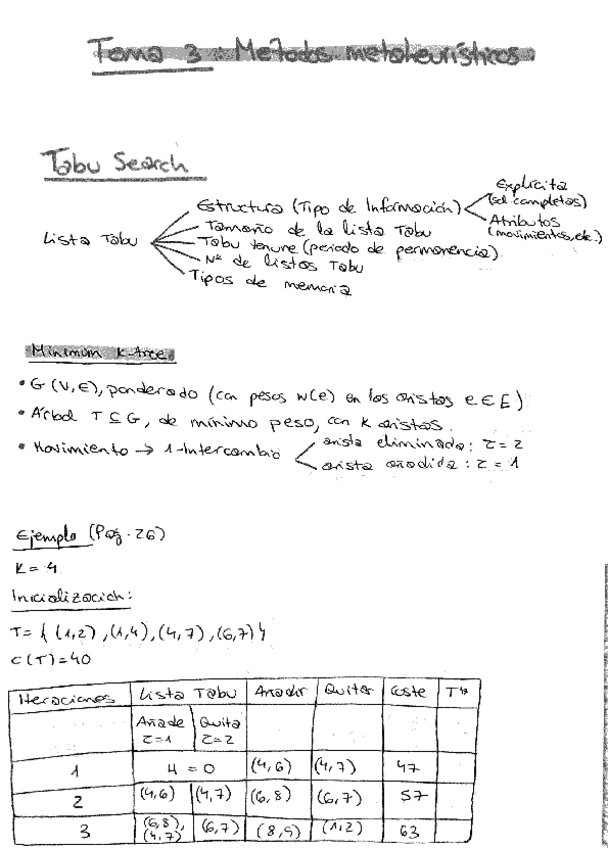 Tema 3: Métodos metaheurísticos
Tabu Search
Lista Tabu
Estructura (Tipo de Información)
Explícita
(sol. completas)
Atributos
(movimientos, etc.)
Tamaño de la lista Tabu
Tabu tenure (periodo de permanencia).
Nº de listas Tabu
Tipos de memoria
Minimum k-tree
• G(V,E), ponderado (con pesos w(e) en las aristas e ∈ E)
• Árbol T ⊆ G, de mínimo peso, con k aristas.
• Movimiento → 1-Intercambio
arista eliminada: τ = 2
arista añadida: τ = 1
Ejemplo (Pág. 26)
K = 4
Inicialización:
T = { (1,2), (1,4), (4,7), (6,7) }
C(T) = 40
Iteraciones Lista Tabu Añadir Quitar Coste T*
Añade Quita
τ=1 τ=2
1 H = 0 (4,6) (4,7) 47
2 (4,6) (4,7) (6,8) (6,7) 57
3 (6,8), (4,7) (6,7) (8,9) (1,2) 63